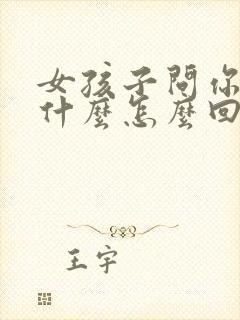 女孩子問你
什麼怎麼回
王宇